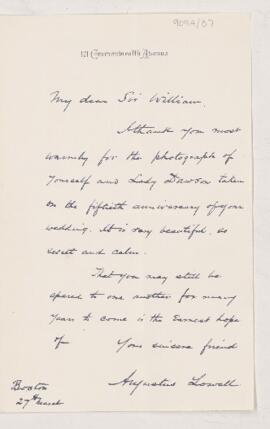 9094/37
171 Commonwealth Avenue
My dear Sir William.
I thank you most
warmly for the photograph of
yourself and Lady Dawson taken
on the fiftieth anniversary of your
wedding. It is very beautiful, so
sweet and calm.
That you may still be
spared to one another for many
years to come is the earnest hope
of Your sincere friend
Augustus Lowell
Boston
27th March